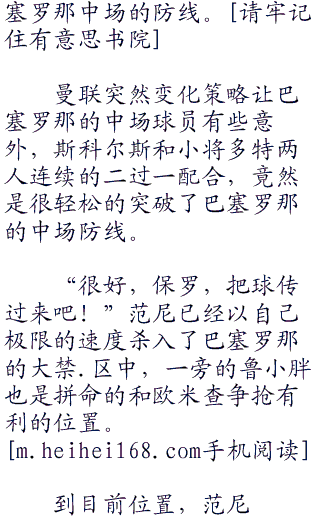 塞罗那中场的防线。[请牢记
住有意思书院]
曼联突然变化策略让巴
塞罗那的中场球员有些意
外，斯科尔斯和小将多特两
人连续的二过一配合，竟然
是很轻松的突破了巴塞罗那
的中场防线。
“很好，保罗，把球传
过来吧！”范尼已经以自己
极限的速度杀入了巴塞罗那
的大禁.区中，一旁的鲁小胖
也是拼命的和欧米查争抢有
利的位置。
[m.heihei168.com手机阅读]
到目前位置，范尼